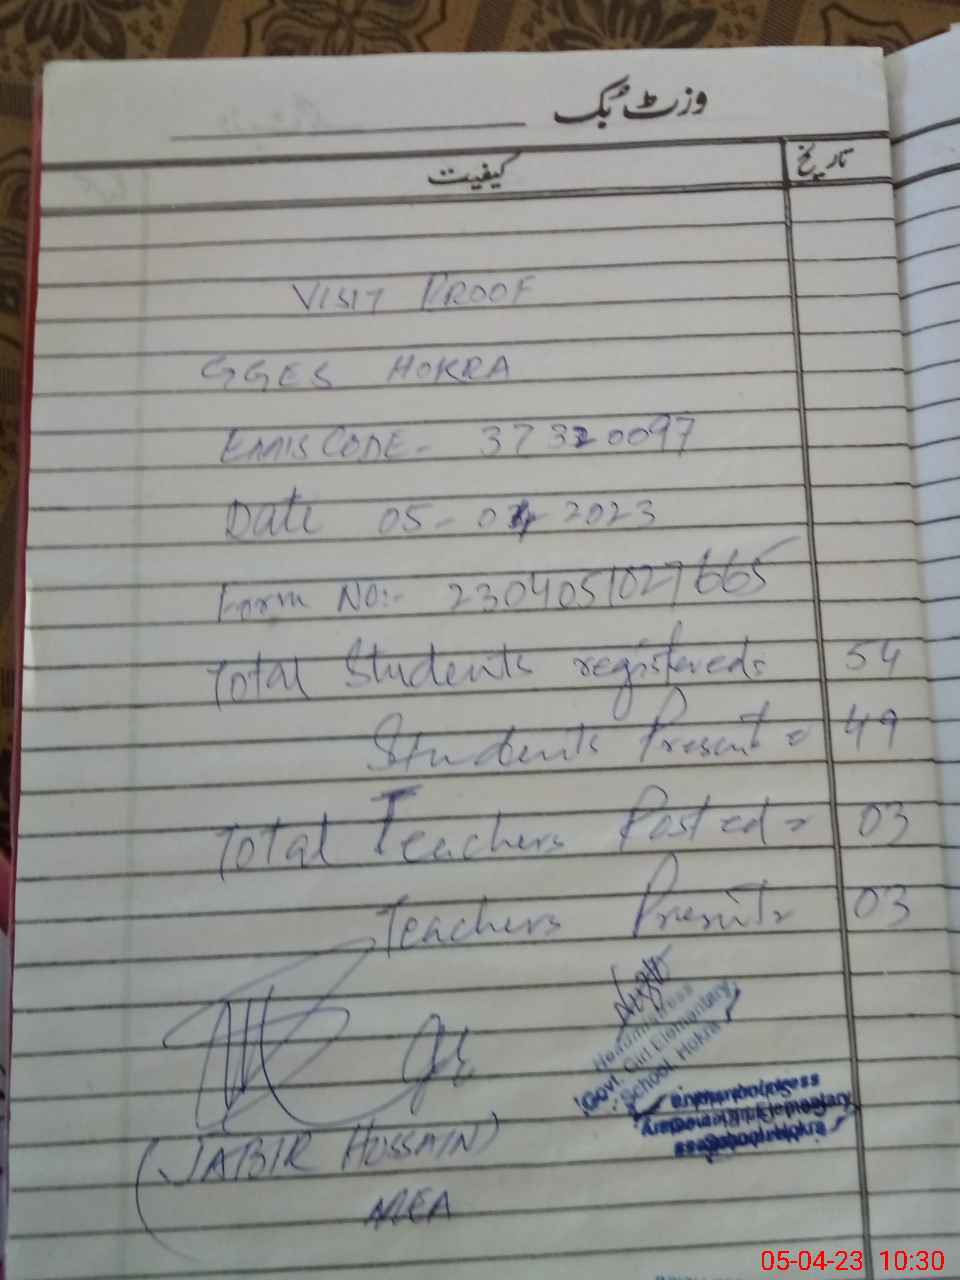 وزٹ بک
تاریخ
کیفیت
VISIT PROOF
GGES HOKRA
EMIS CODE - 37320097
Date 05-04-2023
Form NO:- 2304051027665
Total Students registered = 54
Students Present = 49
Total Teachers Posted = 03
Teachers Present = 03
Headmistress
Govt. Girl Elementary
School Hokra
(JABIR HUSSAIN)
AEA
05-04-23 10:30